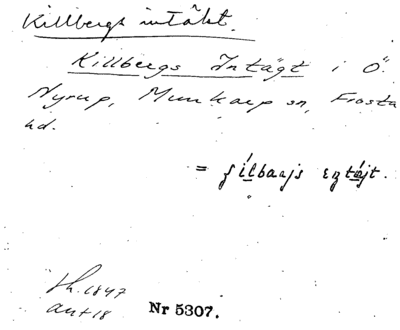 Killbergs intäkt.
Killbergs Intägt i Ö.
Nyrup, Munkarp sn, Frosta
hd.
= ʃilbaajs
1847
Nr 5307.